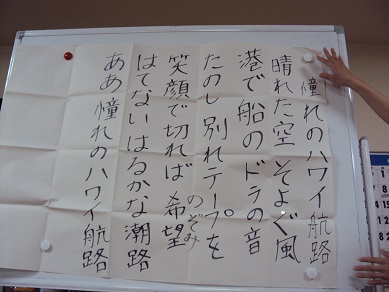 憧れのハワイ航路
晴れた空 そよぐ風
港で船の ドラの音
たのし 別れテープを
笑顔で切れば 希望
のぞみ
はてない はるかな 潮路
ああ 憧れのハワイ航路